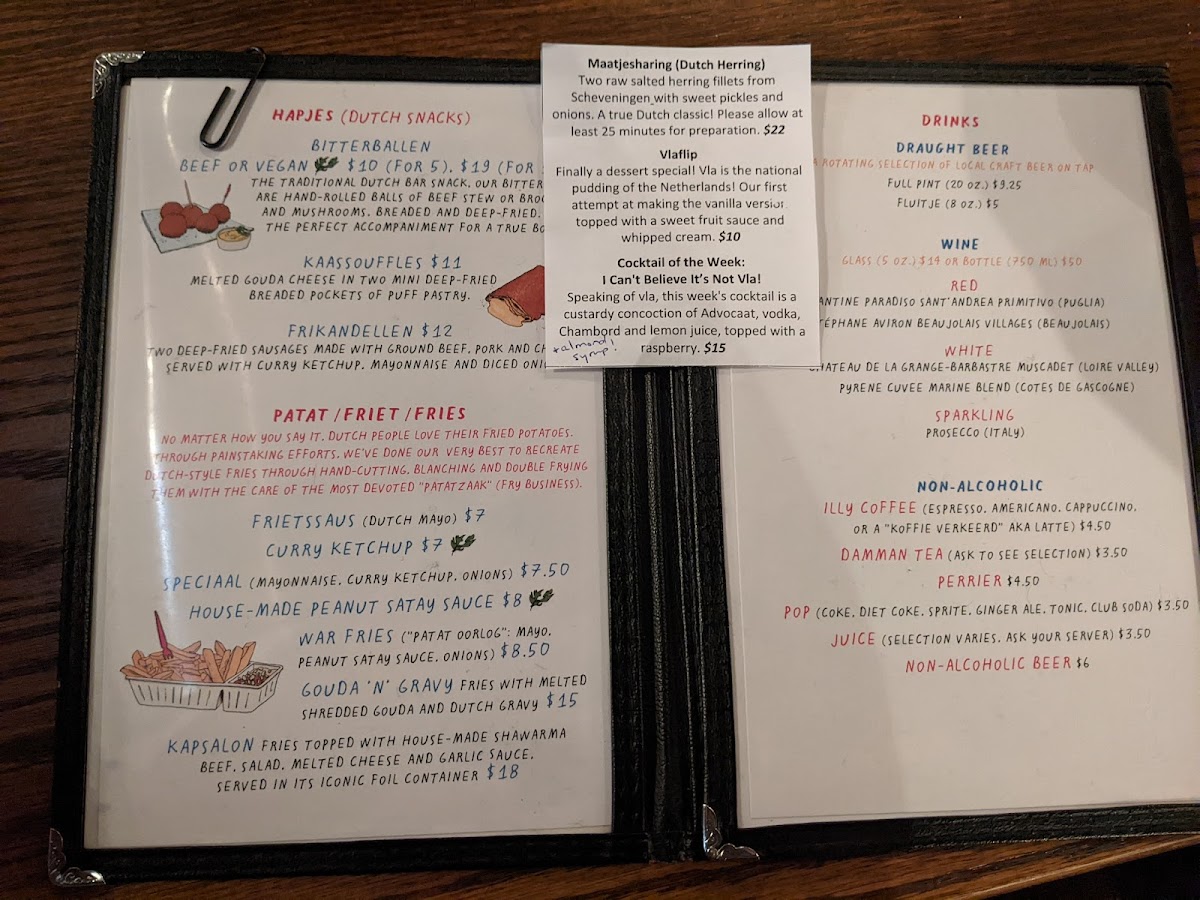 HAPJES (DUTCH SNACKS)
BITTERBALLEN
BEEF OR VEGAN $10 (FOR 5), $19 (FOR
THE TRADITIONAL DUTCH BAR SNACK. OUR BITTER
ARE HAND-ROLLED BALLS OF BEEF STEW OR
AND MUSHROOMS, BREADED AND DEEP-FRIED.
THE PERFECT ACCOMPANIMENT FOR A TRUE
KAASSOUFFLES $11
MELTED GOUDA CHEESE IN TWO MINI DEEP-FRIED
BREADED POCKETS OF PUFF PASTRY.
FRIKANDELLEN $12
TWO DEEP-FRIED SAUSAGES MADE WITH GROUND BEEF, PORK AND
SERVED WITH CURRY KETCHUP, MAYONNAISE AND DICED
PATAT / FRIET / FRIES
NO MATTER HOW YOU SAY IT, DUTCH PEOPLE LOVE THEIR FRIED POTATOES.
THROUGH PAINSTAKING EFFORTS, WE'VE DONE OUR VERY BEST TO RECREATE
DUTCH-STYLE FRIES THROUGH HAND-CUTTING, BLANCHING AND DOUBLE FRYING
THEM WITH THE CARE OF THE MOST DEVOTED "PATATZAAK" (FRY BUSINESS).
FRIETSSAUS (DUTCH MAYO) $7
CURRY KETCHUP $7
SPECIAAL (MAYONNAISE, CURRY KETCHUP, ONIONS) $7.50
HOUSE-MADE PEANUT SATAY SAUCE $8
WAR FRIES ("PATAT OORLOG": MAYO,
PEANUT SATAY SAUCE, ONIONS) $8.50
GOUDA 'N' GRAVY FRIES WITH MELTED
SHREDDED GOUDA AND DUTCH GRAVY $15
KAPSALON FRIES TOPPED WITH HOUSE-MADE SHAWARMA
BEEF, SALAD, MELTED CHEESE AND GARLIC SAUCE,
SERVED IN ITS ICONIC FOIL CONTAINER $18
Maatjesharing (Dutch Herring)
Two raw salted herring fillets from
Scheveningen with sweet pickles and
onions. A true Dutch classic! Please allow at
least 25 minutes for preparation. $22
Vlaflip
Finally a dessert special! Vla is the national
pudding of the Netherlands! Our first
attempt at making the vanilla version
topped with a sweet fruit sauce and
whipped cream. $10
Cocktail of the Week:
I Can't Believe It's Not Vla!
Speaking of vla, this week's cocktail is a
custardy concoction of Advocaat, vodka,
Chambord and lemon juice, topped with a
raspberry. $15
+almond
syrup!
DRINKS
DRAUGHT BEER
A ROTATING SELECTION OF LOCAL CRAFT BEER ON TAP
FULL PINT (20 OZ.) $9.25
FLUITJE (8 OZ.) $5
WINE
GLASS (5 OZ.) $14 OR BOTTLE (750 ML) $50
RED
ANTINE PARADISO SANT'ANDREA PRIMITIVO (PUGLIA)
TÉPHANE AVIRON BEAUJOLAIS VILLAGES (BEAUJOLAIS)
WHITE
CHATEAU DE LA GRANGE-BARBASTRE MUSCADET (LOIRE VALLEY)
PYRENE CUVEE MARINE BLEND (COTES DE GASCOGNE)
SPARKLING
PROSECCO (ITALY)
NON-ALCOHOLIC
ILLY COFFEE (ESPRESSO, AMERICANO, CAPPUCCINO,
OR A "KOFFIE VERKEERD" AKA LATTE) $4.50
DAMMAN TEA (ASK TO SEE SELECTION) $3.50
PERRIER $4.50
POP (COKE, DIET COKE, SPRITE, GINGER ALE, TONIC, CLUB SODA) $3.50
JUICE (SELECTION VARIES, ASK YOUR SERVER) $3.50
NON-ALCOHOLIC BEER $6